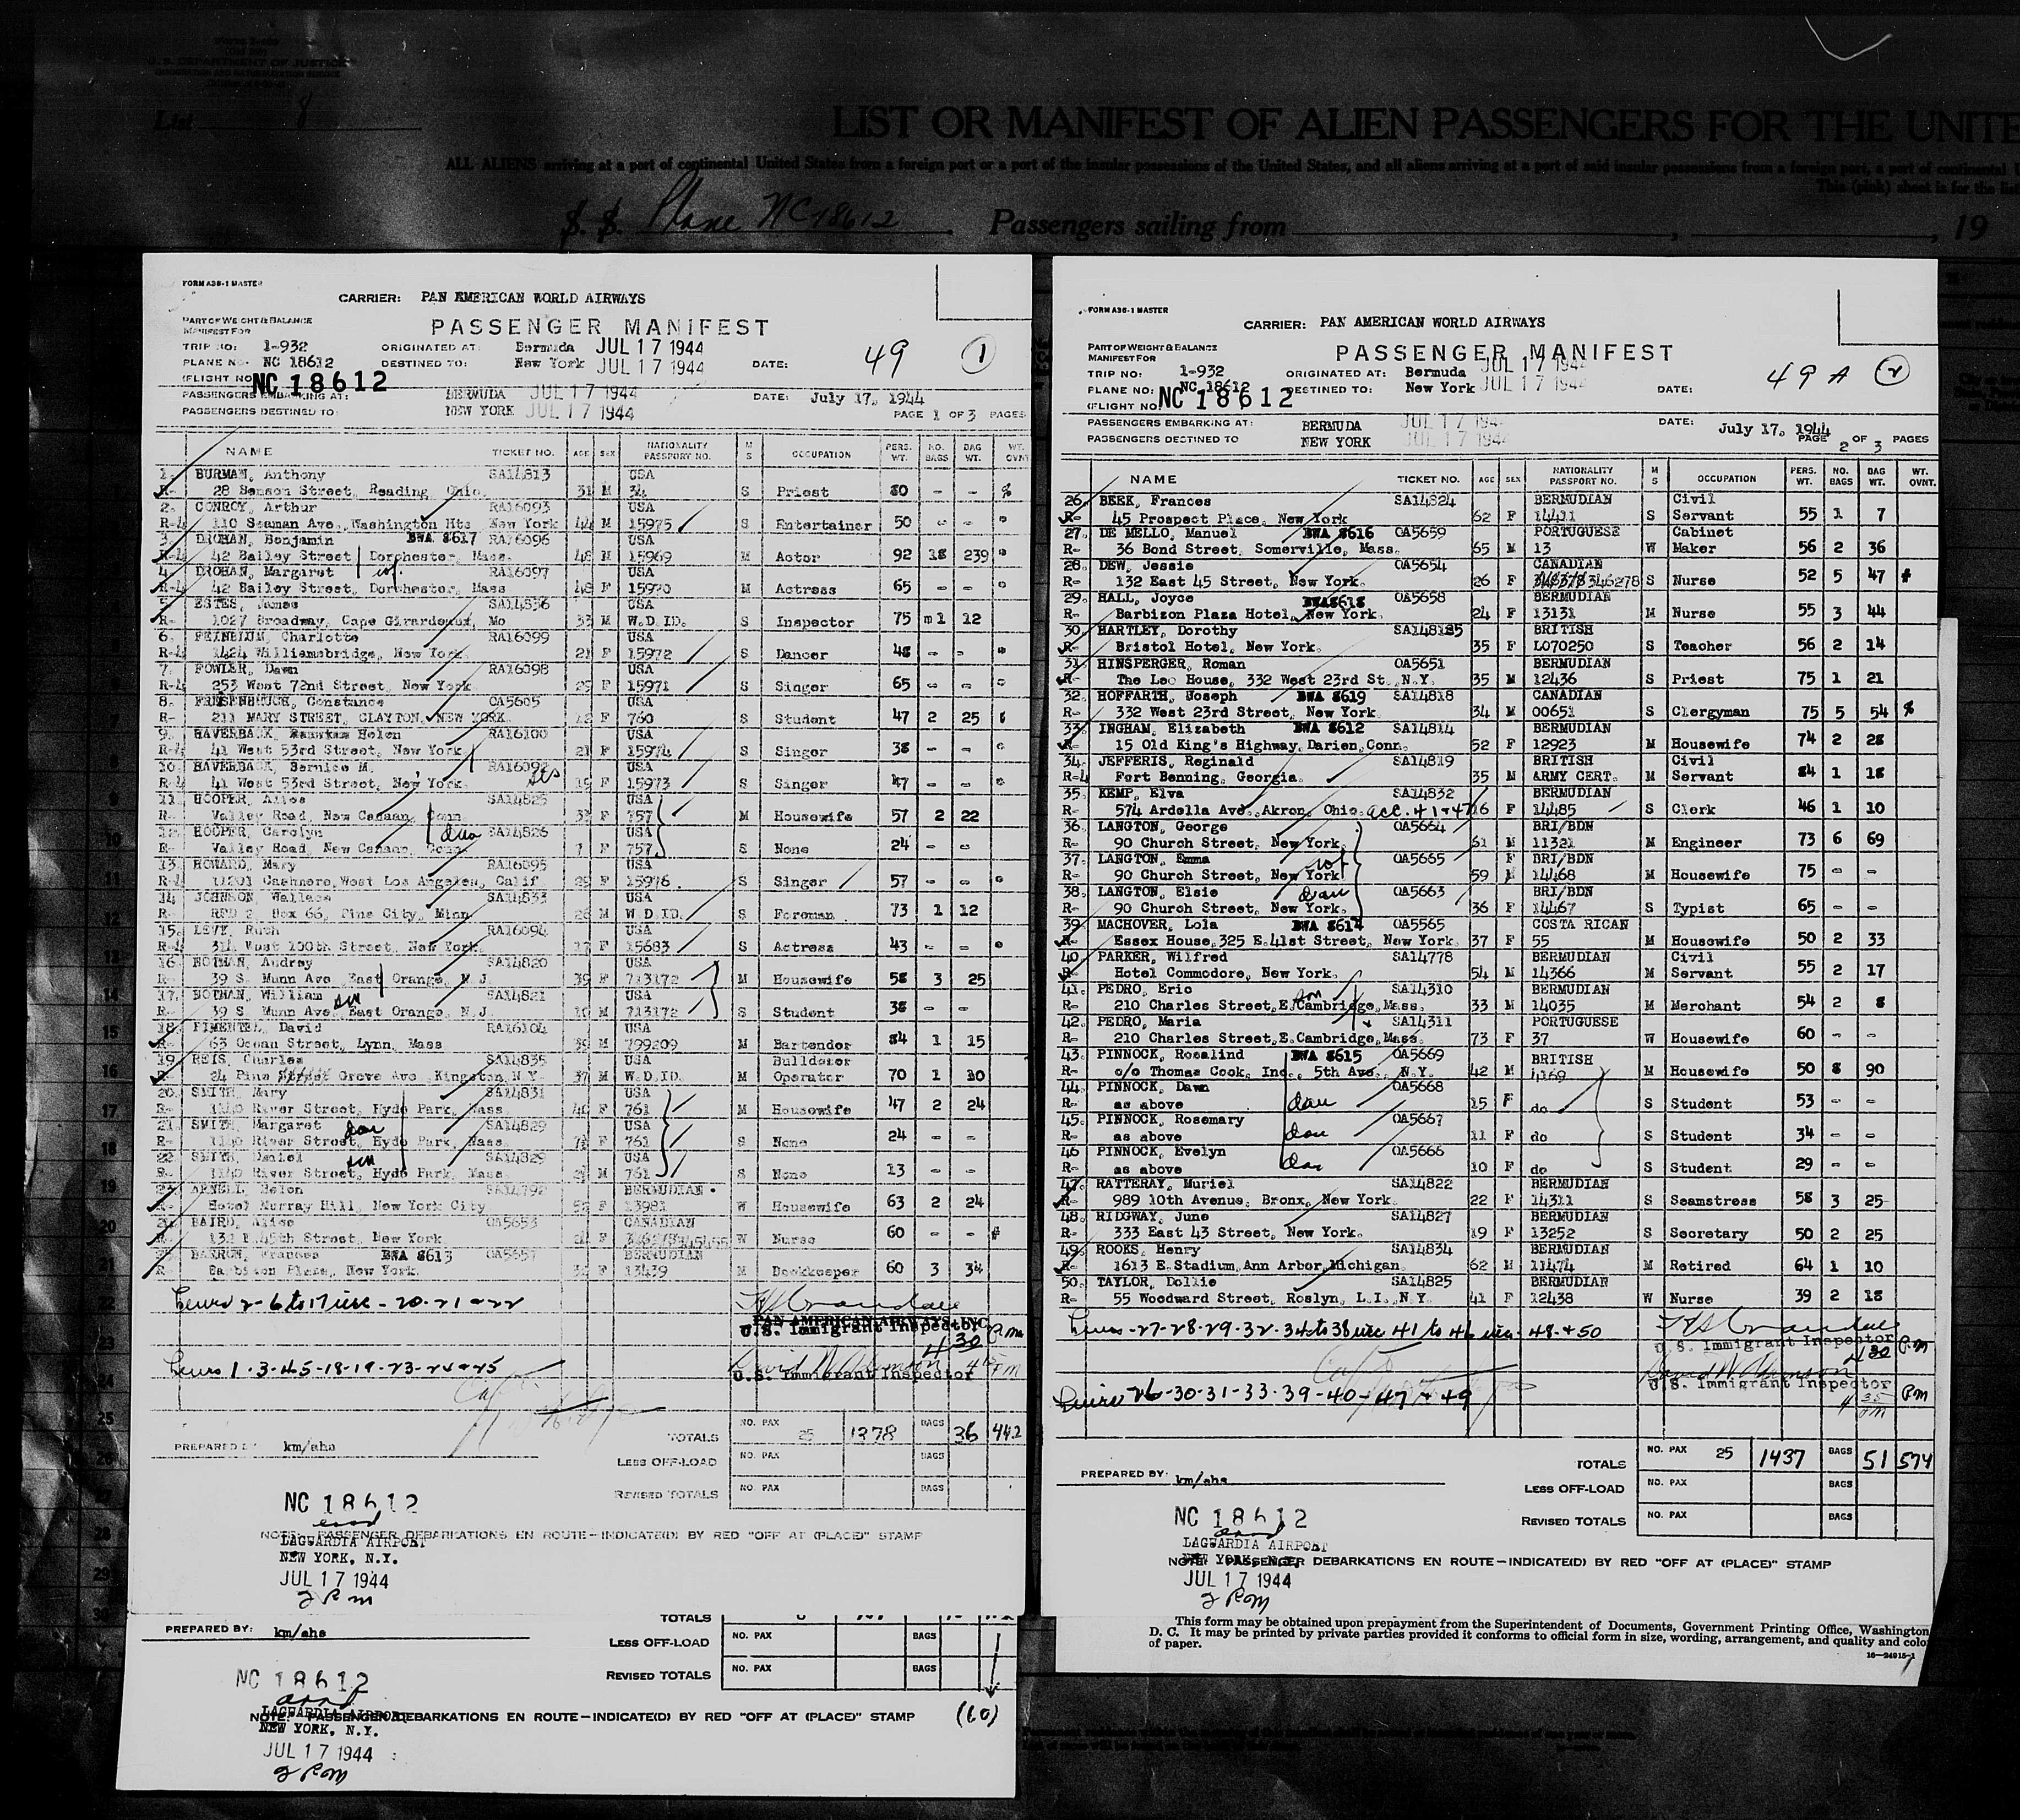 U.S. DEPARTMENT OF JUSTICE
List 8
LIST OR MANIFEST OF ALIEN PASSENGERS FOR THE UNITE
ALL ALIENS arriving at a port of continental United States from a foreign port or a port of the insular possessions of the United States, and all aliens arriving at a port of said insular possessions from a foreign port, a port of continental
This (pink) sheet is for the
S. S. Plane NC 18612 Passengers sailing from , , 19
FORM A38-1 MASTER
CARRIER: PAN AMERICAN WORLD AIRWAYS
PART OF WEIGHT & BALANCE
MANIFEST FOR
PASSENGER MANIFEST
TRIP NO: 1-932 ORIGINATED AT: Bermuda JUL 17 1944
PLANE NO. NC 18612 DESTINED TO: New York JUL 17 1944 DATE: 49 1
(FLIGHT NO. NC 18612
PASSENGERS EMBARKING AT: BERMUDA JUL 17 1944 DATE: July 17, 1944
PASSENGERS DESTINED TO: NEW YORK JUL 17 1944 PAGE 1 OF 3 PAGES
NAME TICKET NO. AGE SEX NATIONALITY PASSPORT NO. M S OCCUPATION PERS. WT. NO. BAGS BAG WT. WT. OVNT.
1. BURMAN, Anthony SA14813 USA
R- 28 Benson Street, Reading, Ohio. 31 M 34 S Priest 80 - -
2. CONROY, Arthur RA16093 USA
R-4 110 Seaman Ave, Washington Hts New York 44 M 15975 S Entertainer 50 - -
3. DROHAN, Benjamin BWA 8617 RA16096 USA
R-4 42 Bailey Street, Dorchester, Mass. 48 M 15969 M Actor 92 18 239
4. DROHAN, Margaret wf RA16097 USA
R-4 42 Bailey Street, Dorchester, Mass 48 F 15970 M Actress 65 - -
5. ESTES, James SA14836 USA
R- 1027 Broadway, Cape Girardeaux, Mo 33 M W.D.ID. S Inspector 75 1 12
6. FEINBLUM, Charlotte RA16099 USA
R-4 1424 Williamsbridge, New York. 21 F 15972 S Dancer 48 - -
7. FOWLER, Dawn RA16098 USA
R-4 253 West 72nd Street, New York 29 F 15971 S Singer 65 - -
8. Constance OA5605 USA
R- 211 MARY STREET, CLAYTON, NEW YORK. 12 F 760 S Student 47 2 25
9. HAVERBACK, Helen RA16100 USA
R-4 41 West 53rd Street, New York 21 F 15974 S Singer 38 - -
10. HAVERBACK, Bernice M. RA16092 USA
R-4 41 West 53rd Street, New York. sis 19 F 15973 S Singer 47 - -
11. HOOPER, Alice SA14825 USA
R- Valley Road, New Canaan, Conn. 32 F 757 M Housewife 57 2 22
12. HOOPER, Carolyn dau SA14826 USA
R- Valley Road, New Canaan, Conn. 1 F 757 S None 24 - -
13. HOWARD, Mary RA16095 USA
R-4 11201 Cashmere, West Los Angeles, Calif 29 F 15976 S Singer 57 - -
14 JOHNSON, Wallace SA14833 USA
R- RFD 2, Box 66, Pine City, Minn 26 M W.D.ID. S Foreman 73 1 12
15. LEVY, Ruth RA16094 USA
R-4 314 West 100th Street, New York. 17 F 15683 S Actress 43 - -
16. Audrey SA14820 USA
R- 39 S. Munn Ave, East Orange, N.J. 39 F 713172 M Housewife 58 3 25
17. William son SA14821 USA
R- 39 S. Munn Ave, East Orange, N.J. 10 M 713172 S Student 38 - -
18. PIMENTEL, David RA16104 USA
R- 63 Ocean Street, Lynn, Mass 39 M 799209 M Bartender 84 1 15
19. REIS, Charles SA14835 USA Bulldozer
R- 24 Pine Grove Ave, Kingston, N.Y. 37 M W.D.ID. M Operator 70 1 10
20. SMITH, Mary SA14831 USA
R- 1140 River Street, Hyde Park, Mass. 40 F 761 M Housewife 47 2 24
21. SMITH, Margaret dau SA14829 USA
R- 1140 River Street, Hyde Park, Mass. F 761 S None 24 - -
22. SMITH, Daniel son SA14829 USA
R- 1140 River Street, Hyde Park, Mass. M 761 S None 13 - -
23. ARNELL, Helen SA14792 BERMUDIAN
R- Hotel Murray Hill, New York City F 13981 W Housewife 63 2 24
24. BAIRD, Alice OA5653 CANADIAN
R- 132 E. 45th Street, New York F W Nurse 60 - -
25. BARRON, Frances BWA 8613 OA5657 BERMUDIAN
R- Barbizon Plaza, New York. F 13439 M Bookkeeper 60 3 34
Lines 2-6 to 17 inc - 20-21 & 22
PAN AMERICAN AIRWAYS, INC.
U.S. Immigrant Inspector 4 30 P.m
Lines 1-3-4-5-18-19-23-24 & 25
U.S. Immigrant Inspector
NO. PAX 25 1378 BAGS 36 442
PREPARED BY km/ahs TOTALS
LESS OFF-LOAD NO. PAX BAGS
REVISED TOTALS NO. PAX BAGS
NC 18612
arrd
NOTE: PASSENGER DEBARKATIONS EN ROUTE—INDICATE(D) BY RED "OFF AT (PLACE)" STAMP
LAGUARDIA AIRPORT
NEW YORK, N.Y.
JUL 17 1944
2 Pm
TOTALS
PREPARED BY: km/ahs
LESS OFF-LOAD NO. PAX BAGS
REVISED TOTALS NO. PAX BAGS
NC 18612
arrd
LAGUARDIA AIRPORT
NOTE: PASSENGER DEBARKATIONS EN ROUTE—INDICATE(D) BY RED "OFF AT (PLACE)" STAMP (60)
NEW YORK, N.Y.
JUL 17 1944
2 PM
FORM A38-1 MASTER
CARRIER: PAN AMERICAN WORLD AIRWAYS
PART OF WEIGHT & BALANCE
MANIFEST FOR
PASSENGER MANIFEST
TRIP NO: 1-932 ORIGINATED AT: Bermuda JUL 17 1944
PLANE NO: NC 18612 DESTINED TO: New York JUL 17 1944 DATE: 49 A 2
(FLIGHT NO. NC 18612
PASSENGERS EMBARKING AT: BERMUDA JUL 17 194 DATE: July 17, 1944
PASSENGERS DESTINED TO NEW YORK JUL 17 194 PAGE 2 OF 3 PAGES
NAME TICKET NO. AGE SEX NATIONALITY PASSPORT NO. M S OCCUPATION PERS. WT. NO. BAGS BAG WT. WT. OVNT.
26. BEEK, Frances SA14824 BERMUDIAN Civil
R- 45 Prospect Place, New York 62 F 14411 S Servant 55 1 7
27. DE MELLO, Manuel BWA 8616 OA5659 PORTUGUESE Cabinet
R- 36 Bond Street, Somerville, Mass. 65 M 13 W Maker 56 2 36
28. DEW, Jessie OA5654 CANADIAN
R- 132 East 45 Street, New York. 26 F 346278 S Nurse 52 5 47 #
29. HALL, Joyce BWA8618 OA5658 BERMUDIAN
R- Barbizon Plaza Hotel, New York. 24 F 13131 M Nurse 55 3 44
30. HARTLEY, Dorothy BRITISH
R- Bristol Hotel, New York. 35 F L070250 S Teacher 56 2 14
31 HINSPERGER, Roman OA5651 BERMUDIAN
R- The Leo House, 332 West 23rd St., N.Y. 35 M 12436 S Priest 75 1 21
32. HOFFARTH, Joseph BWA 8619 SA14818 CANADIAN
R- 332 West 23rd Street, New York 34 M 00651 S Clergyman 75 5 54
33. INGHAM, Elizabeth BWA 8612 SA14814 BERMUDIAN
R- 15 Old King's Highway, Darien, Conn. 52 F 12923 M Housewife 74 2 28
34. JEFFERIS, Reginald SA14819 BRITISH Civil
R-4 Fort Benning, Georgia. 35 M ARMY CERT. M Servant 84 1 18
35. KEMP, Elva SA14832 BERMUDIAN
R- 574 Ardella Ave, Akron, Ohio. 16 F 14485 S Clerk 46 1 10
36. LANGTON, George OA5664 BRI/BDN
R- 90 Church Street, New York. 61 M 11321 M Engineer 73 6 69
37. LANGTON, Emma wf OA5665 F BRI/BDN
R- 90 Church Street, New York 59 M 14468 M Housewife 75 - -
38. LANGTON, Elsie dau OA5663 BRI/BDN
R- 90 Church Street, New York. 36 F 14467 S Typist 65 - -
39 MACHOVER, Lola BWA 8614 OA5565 COSTA RICAN
R- Essex House, 325 E. 41st Street, New York. 37 F 55 M Housewife 50 2 33
40 PARKER, Wilfred SA14778 BERMUDIAN Civil
R- Hotel Commodore, New York. 54 M 14366 M Servant 55 2 17
41. PEDRO, Eric son SA14310 BERMUDIAN
R- 210 Charles Street, E. Cambridge, Mass. 33 M 14035 M Merchant 54 2 8
42. PEDRO, Maria SA14311 PORTUGUESE
R- 210 Charles Street, E. Cambridge, Mass. 73 F 37 W Housewife 60 - -
43. PINNOCK, Rosalind BWA 8615 OA5669 BRITISH
R- c/o Thomas Cook, Inc., 5th Ave., N.Y. 42 M 4169 M Housewife 50 8 90
44. PINNOCK, Dawn OA5668
R- as above dau 15 F do S Student 53 - -
45. PINNOCK, Rosemary OA5667
R- as above dau 11 F do S Student 34 - -
46 PINNOCK, Evelyn OA5666
R- as above dau 10 F do S Student 29 - -
47. RATTERAY, Muriel SA14822 BERMUDIAN
R- 989 10th Avenue, Bronx, New York. 22 F 14311 S Seamstress 58 3 25
48. RIDGWAY, June SA14827 BERMUDIAN
R- 333 East 43 Street, New York. 19 F 13252 S Secretary 50 2 25
49. ROOKS, Henry SA14834 BERMUDIAN
R- 1613 E. Stadium, Ann Arbor, Michigan. 62 M 11474 M Retired 64 1 10
50. TAYLOR, Dollie SA14825 BERMUDIAN
R- 55 Woodward Street, Roslyn, L.I., N.Y. 41 F 12438 W Nurse 39 2 18
Lines -27-28-29-32-34 to 38 inc 41 to 46 inc - 48 & 50
U.S. Immigrant Inspector 4 30 P.m
Lines 26-30-31-33-39-40-47 & 49
U.S. Immigrant Inspector 4 35 pm Pm
TOTALS NO. PAX 25 1437 BAGS 51 574
PREPARED BY: km/ahs
LESS OFF-LOAD NO. PAX BAGS
REVISED TOTALS NO. PAX BAGS
NC 18612
arrd
LAGUARDIA AIRPORT
NEW YORK, N.Y.
NOTE: PASSENGER DEBARKATIONS EN ROUTE—INDICATE(D) BY RED "OFF AT (PLACE)" STAMP
JUL 17 1944
2 Pm
This form may be obtained upon prepayment from the Superintendent of Documents, Government Printing Office, Washington
D. C. It may be printed by private parties provided it conforms to official form in size, wording, arrangement, and quality and colo
of paper.
16—24915-1